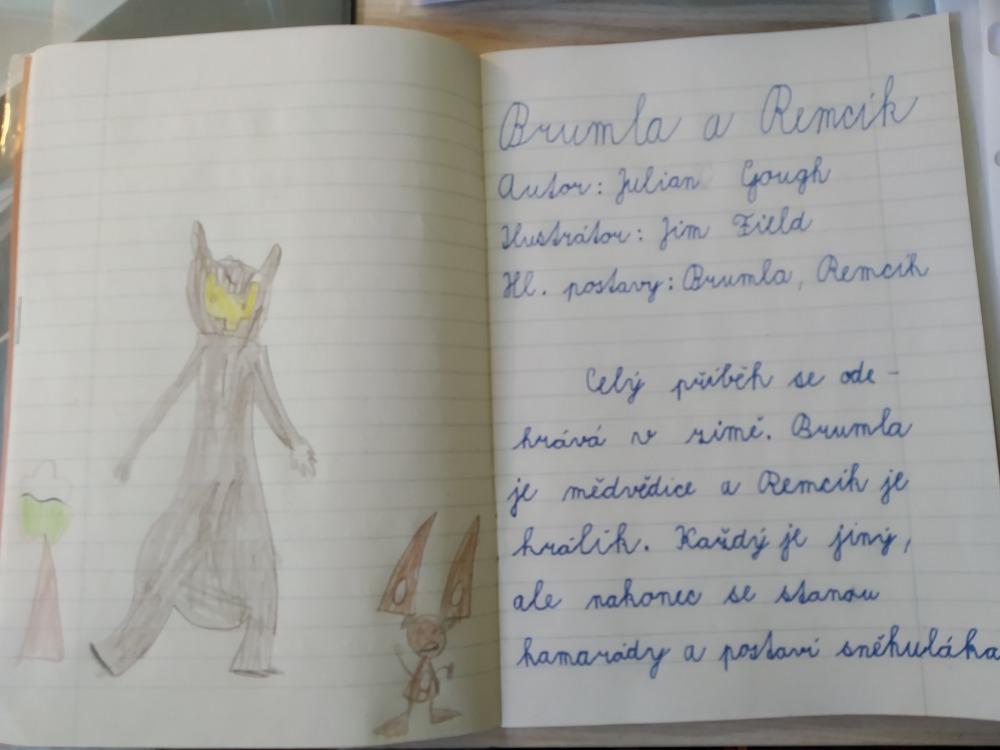 Brumla a Remcik
Autor: Julian Gough
Ilustrátor: Jim Field
Hl. postavy: Brumla, Remcik
Celý příběh se ode-
hrává v zimě. Brumla
je mědvědice a Remcik je
králik. Každý je jiný,
ale nakonec se stanou
kamarády a postaví sněhuláka